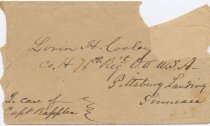 Lorin H. Cooley
Co. H 78th Reg O.V.U.S.A.
Pittsburg Landing
Tennessee
In care of
Capt Rapplee